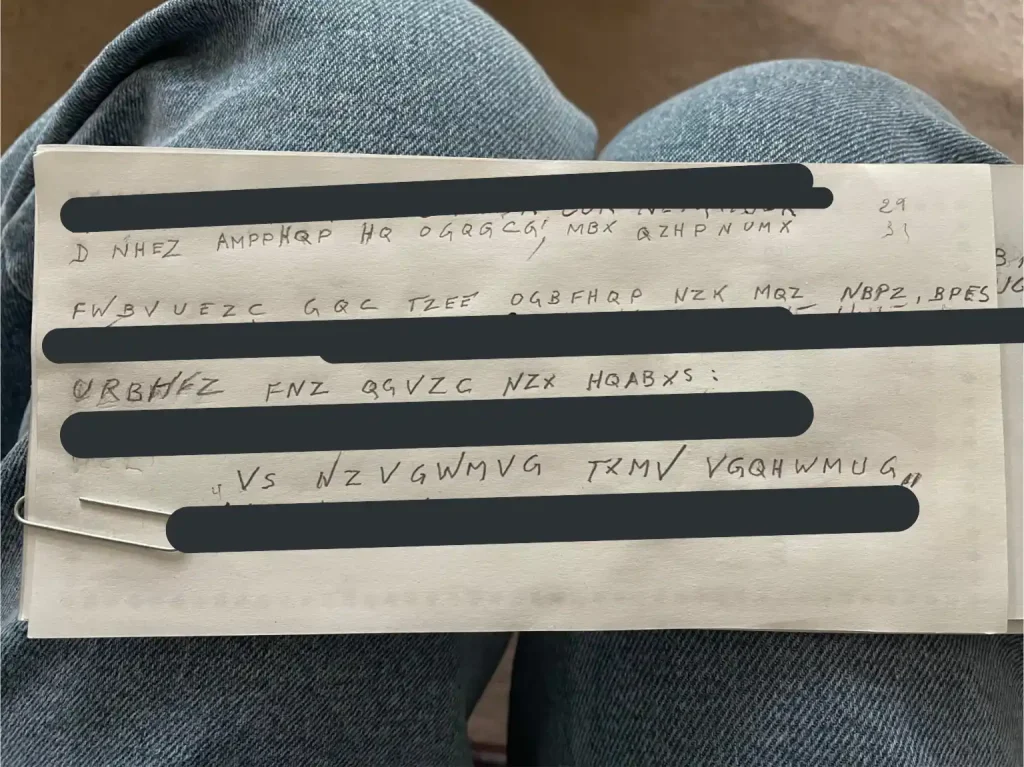 29
D NHEZ AMPPHQP HQ OGQGCG, MBX QZHPNUMX 31
FWBVUEZC GQC TZEE OGBFHQP NZK MQZ NBPZ, BPES
URBHFZ FNZ QGVZC NZX HQABXS:
"VS NZVGWMVG TXMV VGQHWMUG"